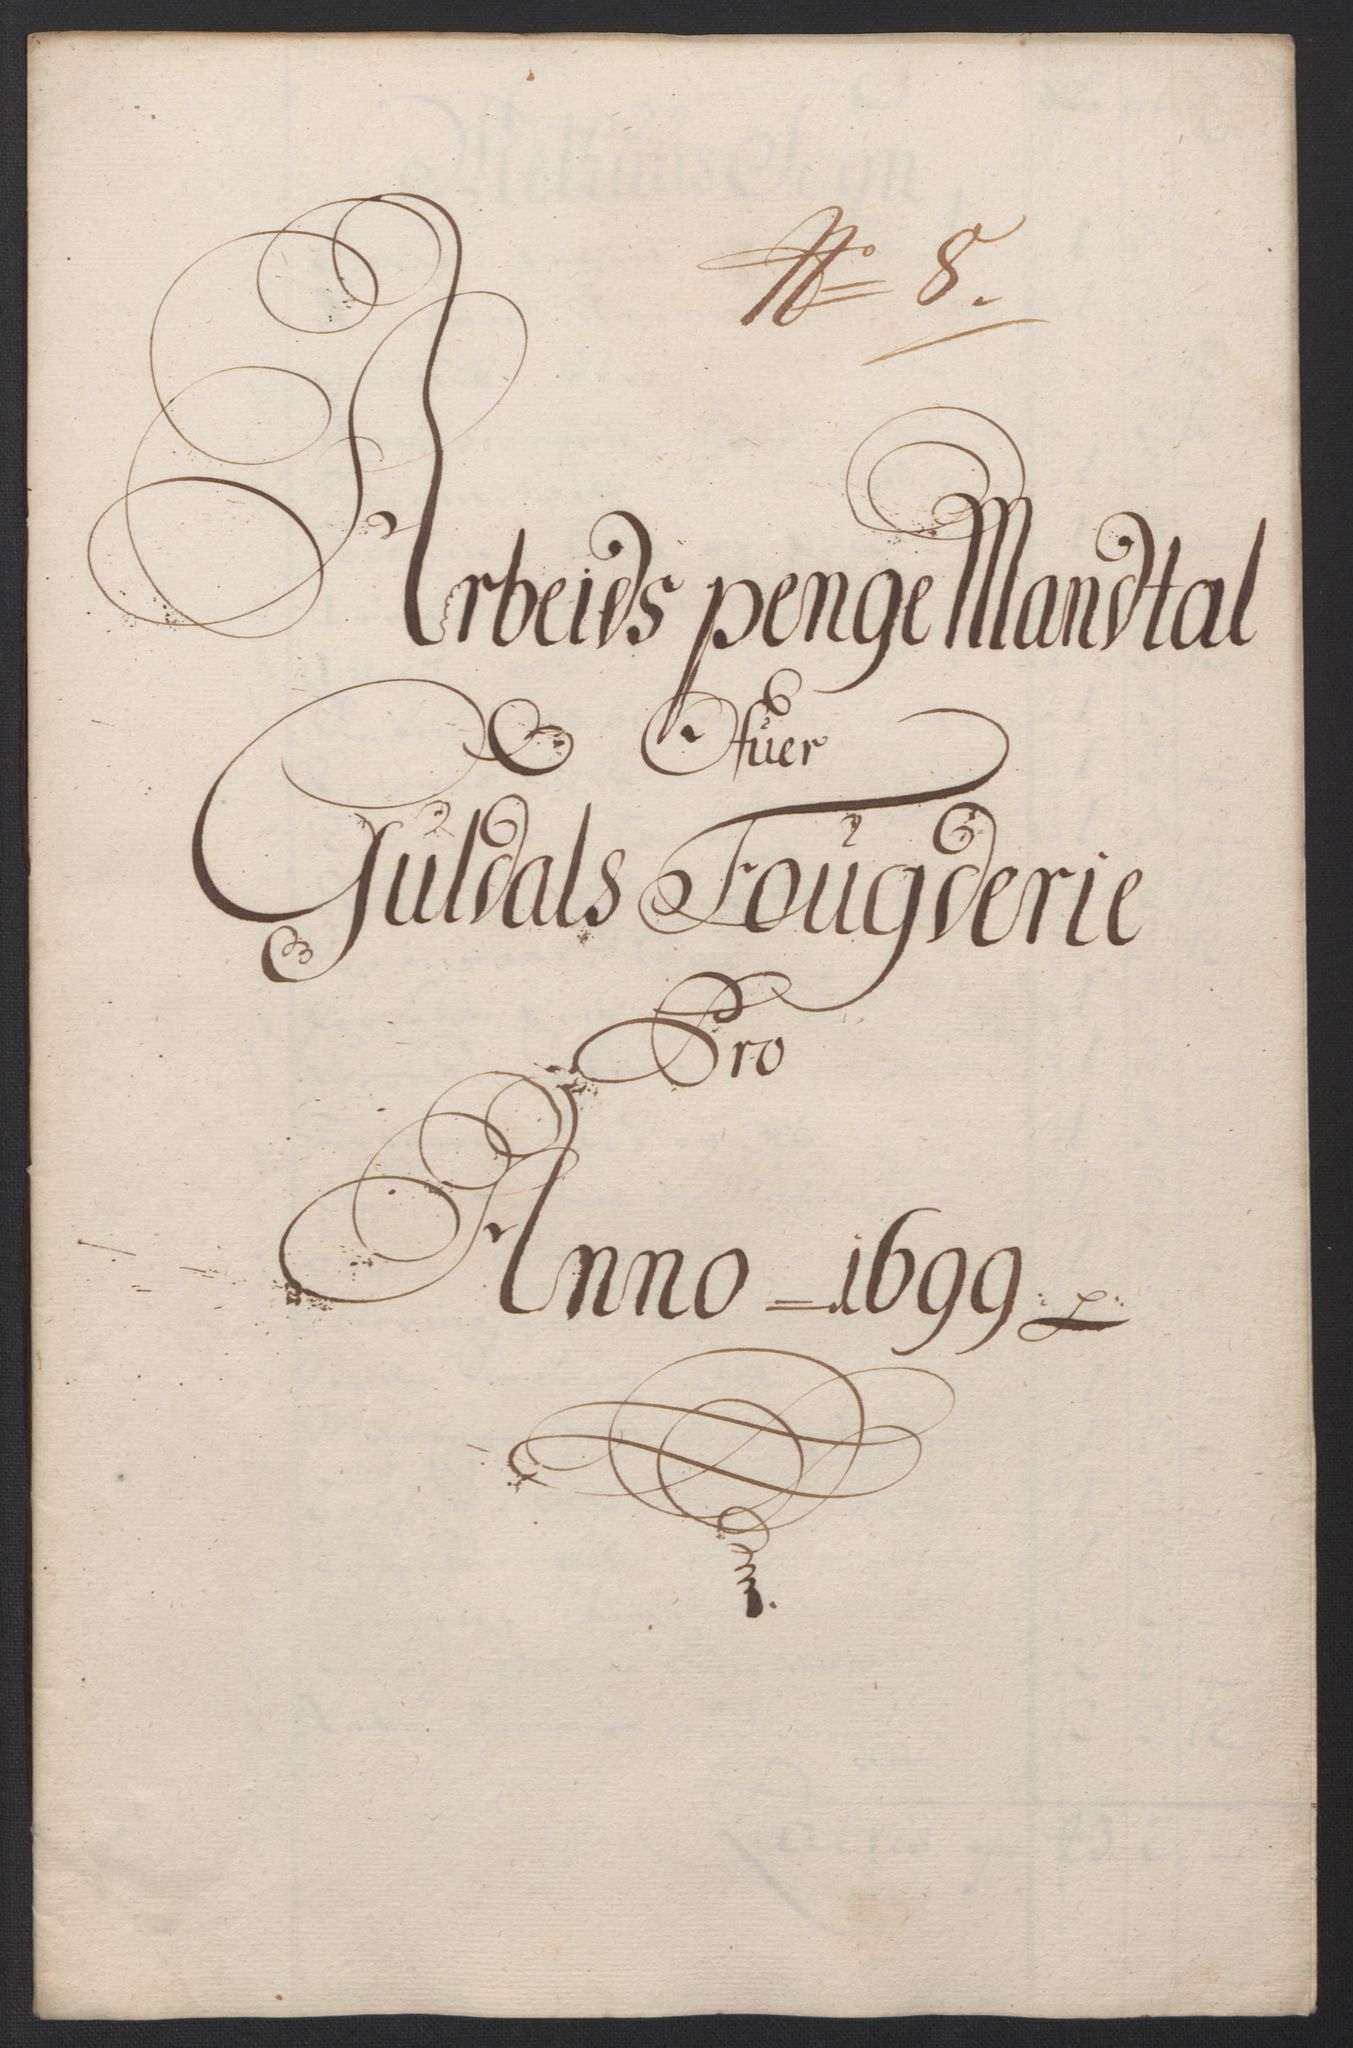 No 8.
Arbeids penge Mandtal
Ofuer
Guldals Fougderie
Pro
Anno 1699